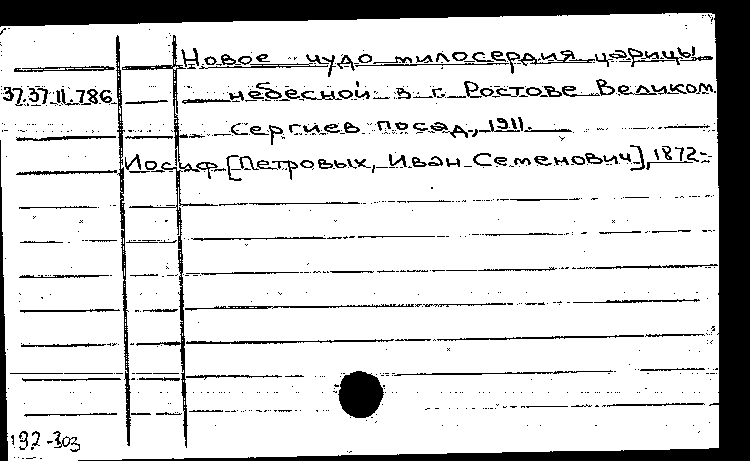 Новое чудо милосердия царицы
37.37.11.786 небесной в г. Ростове Великом
Сергиев посад, 1911.
Иосиф [Петровых, Иван Семенович], 1872-
192-303